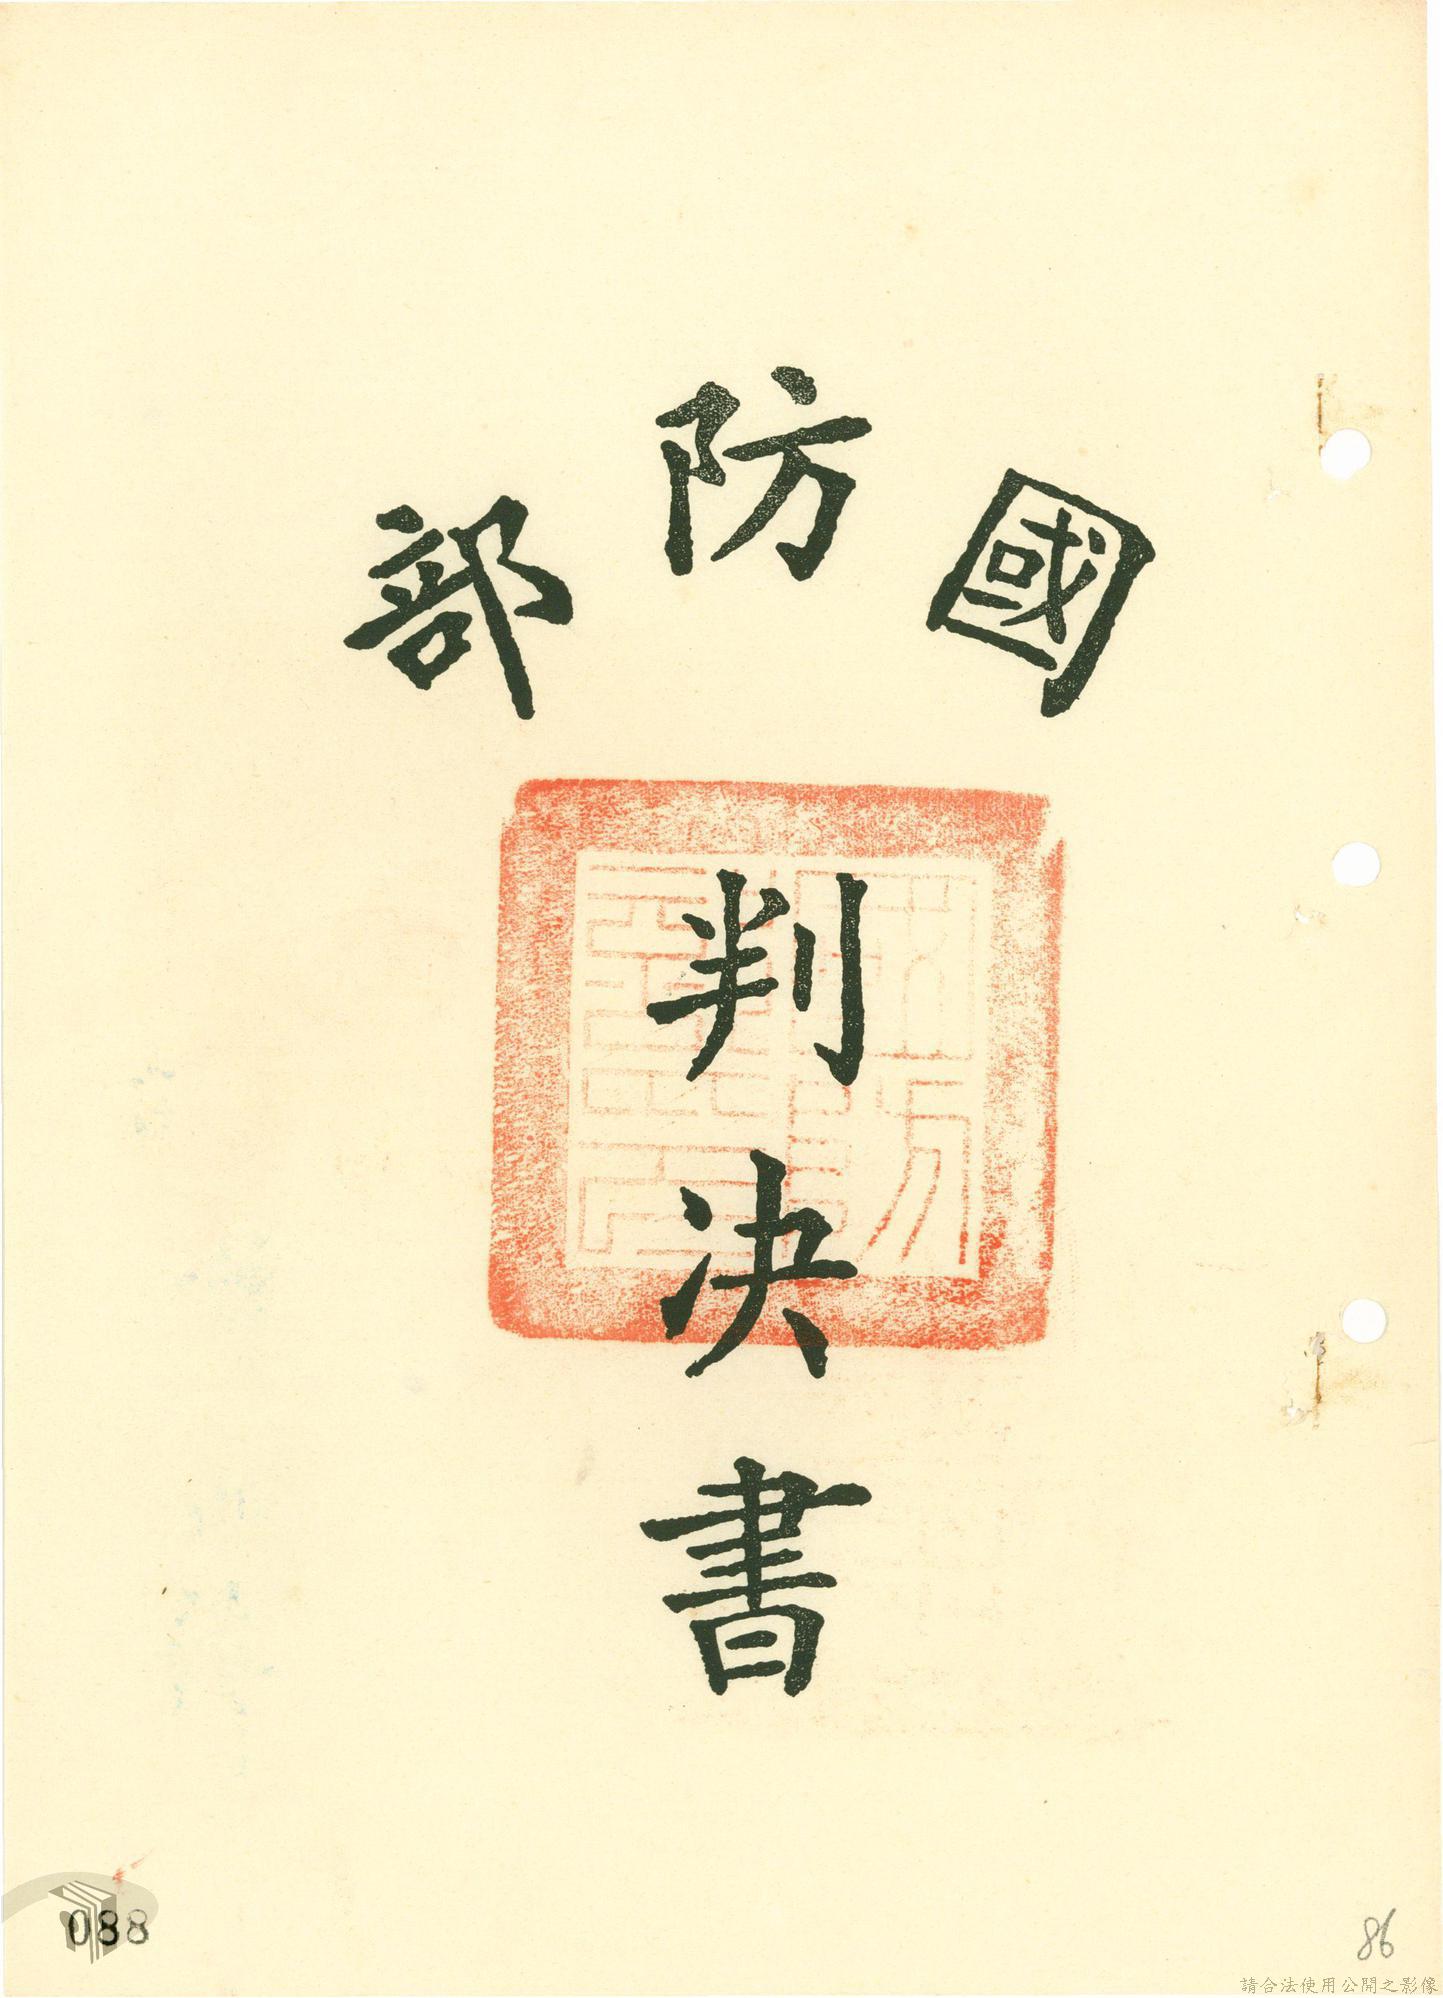 國防部
判決書
088
86
請合法使用公開之影像